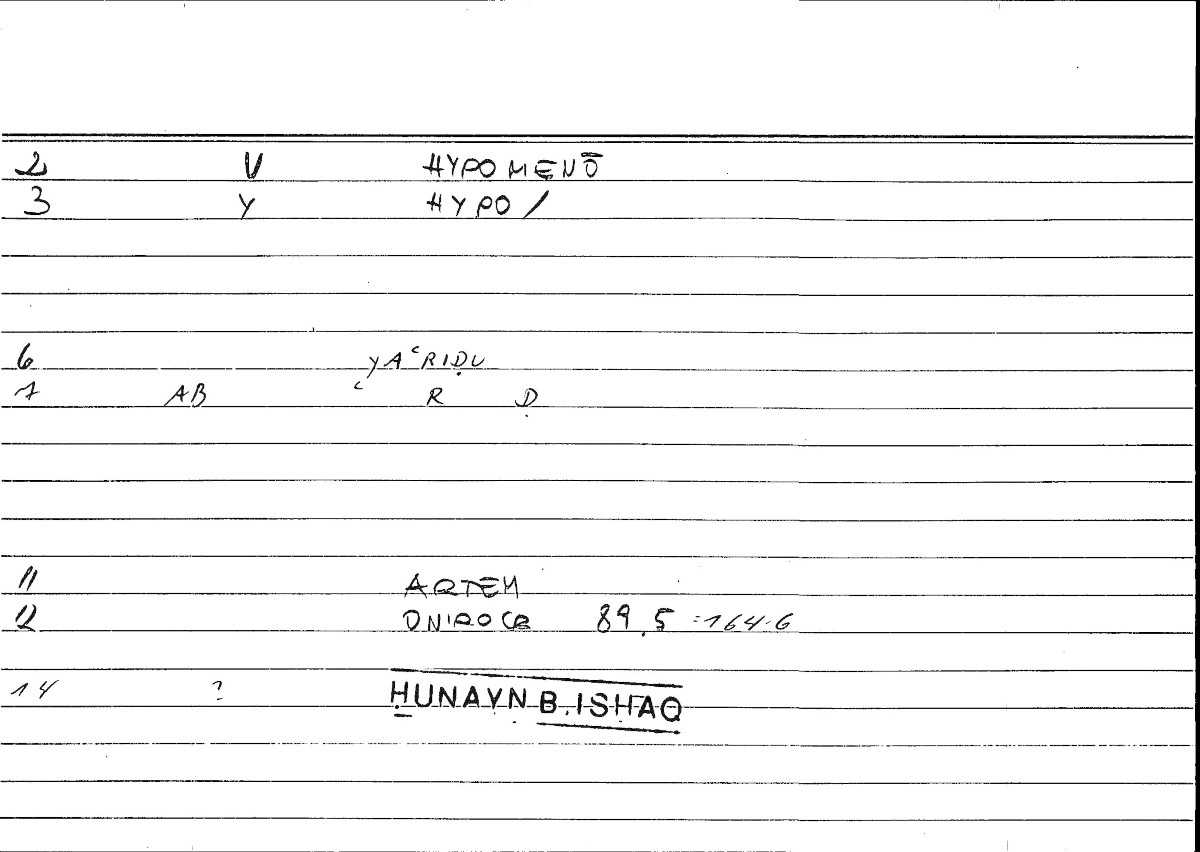 2 V HYPOMENŌ
3 Y HYPO/
6 YAʿRIḌU
7 AB ʿ R Ḍ
11 ARTEM
12 ONIROCR 89,5 = 164.6
14 ? ḤUNAYN B. ISHAQ